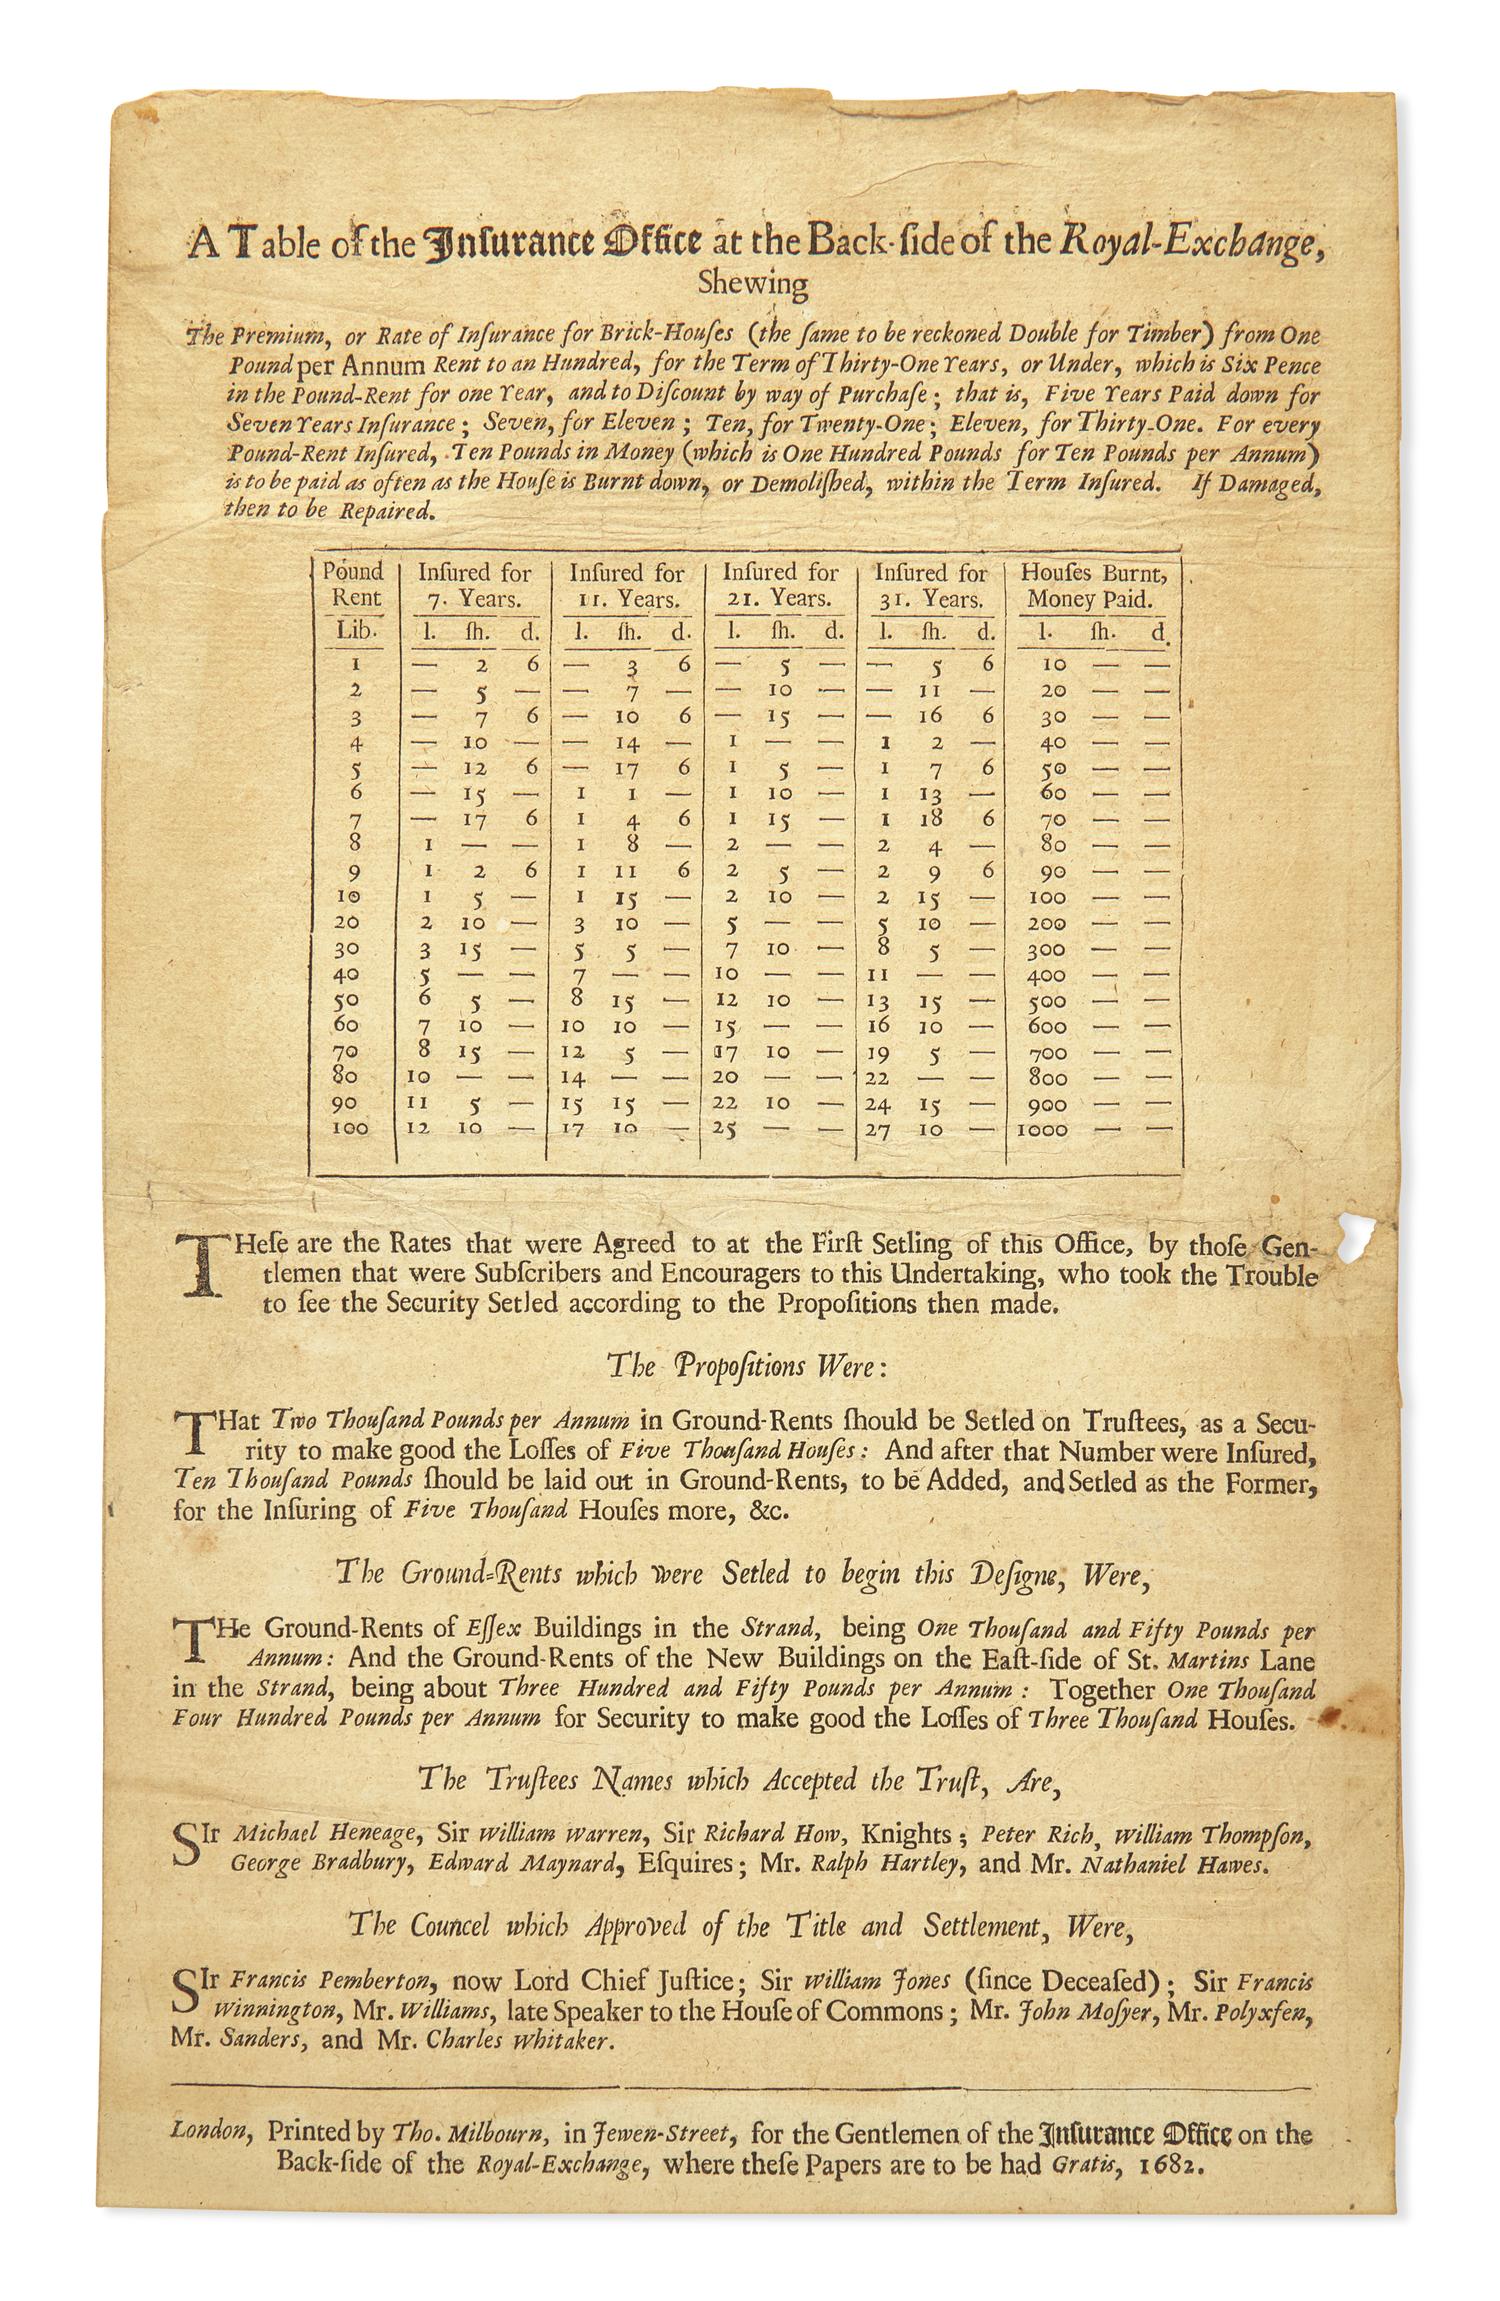 A Table of the Inſurance Office at the Back-ſide of the Royal-Exchange,
Shewing
The Premium, or Rate of Inſurance for Brick-Houſes (the ſame to be reckoned Double for Timber) from One
Pound per Annum Rent to an Hundred, for the Term of Thirty-One Years, or Under, which is Six Pence
in the Pound-Rent for one Year, and to Diſcount by way of Purchaſe; that is, Five Years Paid down for
Seven Years Inſurance; Seven, for Eleven; Ten, for Twenty-One; Eleven, for Thirty-One. For every
Pound-Rent Inſured, Ten Pounds in Money (which is One Hundred Pounds for Ten Pounds per Annum)
is to be paid as often as the Houſe is Burnt down, or Demoliſhed, within the Term Inſured. If Damaged,
then to be Repaired.
Pound Inſured for Inſured for Inſured for Inſured for Houſes Burnt,
Rent 7. Years. 11. Years. 21. Years. 31. Years. Money Paid.
Lib. l. ſh. d. l. ſh. d. l. ſh. d. l. ſh. d. l. ſh. d.
1 — 2 6 — 3 6 — 5 — — 5 6 10 — —
2 — 5 — — 7 — — 10 — — 11 — 20 — —
3 — 7 6 — 10 6 — 15 — — 16 6 30 — —
4 — 10 — — 14 — 1 — — 1 2 — 40 — —
5 — 12 6 — 17 6 1 5 — 1 7 6 50 — —
6 — 15 — 1 1 — 1 10 — 1 13 — 60 — —
7 — 17 6 1 4 6 1 15 — 1 18 6 70 — —
8 1 — — 1 8 — 2 — — 2 4 — 80 — —
9 1 2 6 1 11 6 2 5 — 2 9 6 90 — —
10 1 5 — 1 15 — 2 10 — 2 15 — 100 — —
20 2 10 — 3 10 — 5 — — 5 10 — 200 — —
30 3 15 — 5 5 — 7 10 — 8 5 — 300 — —
40 5 — — 7 — — 10 — — 11 — — 400 — —
50 6 5 — 8 15 — 12 10 — 13 15 — 500 — —
60 7 10 — 10 10 — 15 — — 16 10 — 600 — —
70 8 15 — 12 5 — 17 10 — 19 5 — 700 — —
80 10 — — 14 — — 20 — — 22 — — 800 — —
90 11 5 — 15 15 — 22 10 — 24 15 — 900 — —
100 12 10 — 17 10 — 25 — — 27 10 — 1000 — —
THeſe are the Rates that were Agreed to at the Firſt Setling of this Office, by thoſe Gen-
tlemen that were Subſcribers and Encouragers to this Undertaking, who took the Trouble
to ſee the Security Setled according to the Propoſitions then made.
The Propoſitions Were:
THat Two Thouſand Pounds per Annum in Ground-Rents ſhould be Setled on Truſtees, as a Secu-
rity to make good the Loſſes of Five Thouſand Houſes: And after that Number were Inſured,
Ten Thouſand Pounds ſhould be laid out in Ground-Rents, to be Added, and Setled as the Former,
for the Inſuring of Five Thouſand Houſes more, &c.
The Ground-Rents which were Setled to begin this Deſigne, Were,
THe Ground-Rents of Eſſex Buildings in the Strand, being One Thouſand and Fifty Pounds per
Annum: And the Ground-Rents of the New Buildings on the Eaſt-ſide of St. Martins Lane
in the Strand, being about Three Hundred and Fifty Pounds per Annum: Together One Thouſand
Four Hundred Pounds per Annum for Security to make good the Loſſes of Three Thouſand Houſes.
The Truſtees Names which Accepted the Truſt, Are,
SIr Michael Heneage, Sir William Warren, Sir Richard How, Knights; Peter Rich, William Thompſon,
George Bradbury, Edward Maynard, Eſquires; Mr. Ralph Hartley, and Mr. Nathaniel Hawes.
The Councel which Approved of the Title and Settlement, Were,
SIr Francis Pemberton, now Lord Chief Juſtice; Sir William Jones (ſince Deceaſed); Sir Francis
Winnington, Mr. Williams, late Speaker to the Houſe of Commons; Mr. John Moſyer, Mr. Polyxfen,
Mr. Sanders, and Mr. Charles Whitaker.
London, Printed by Tho. Milbourn, in Jewen-Street, for the Gentlemen of the Inſurance Office on the
Back-ſide of the Royal-Exchange, where theſe Papers are to be had Gratis, 1682.